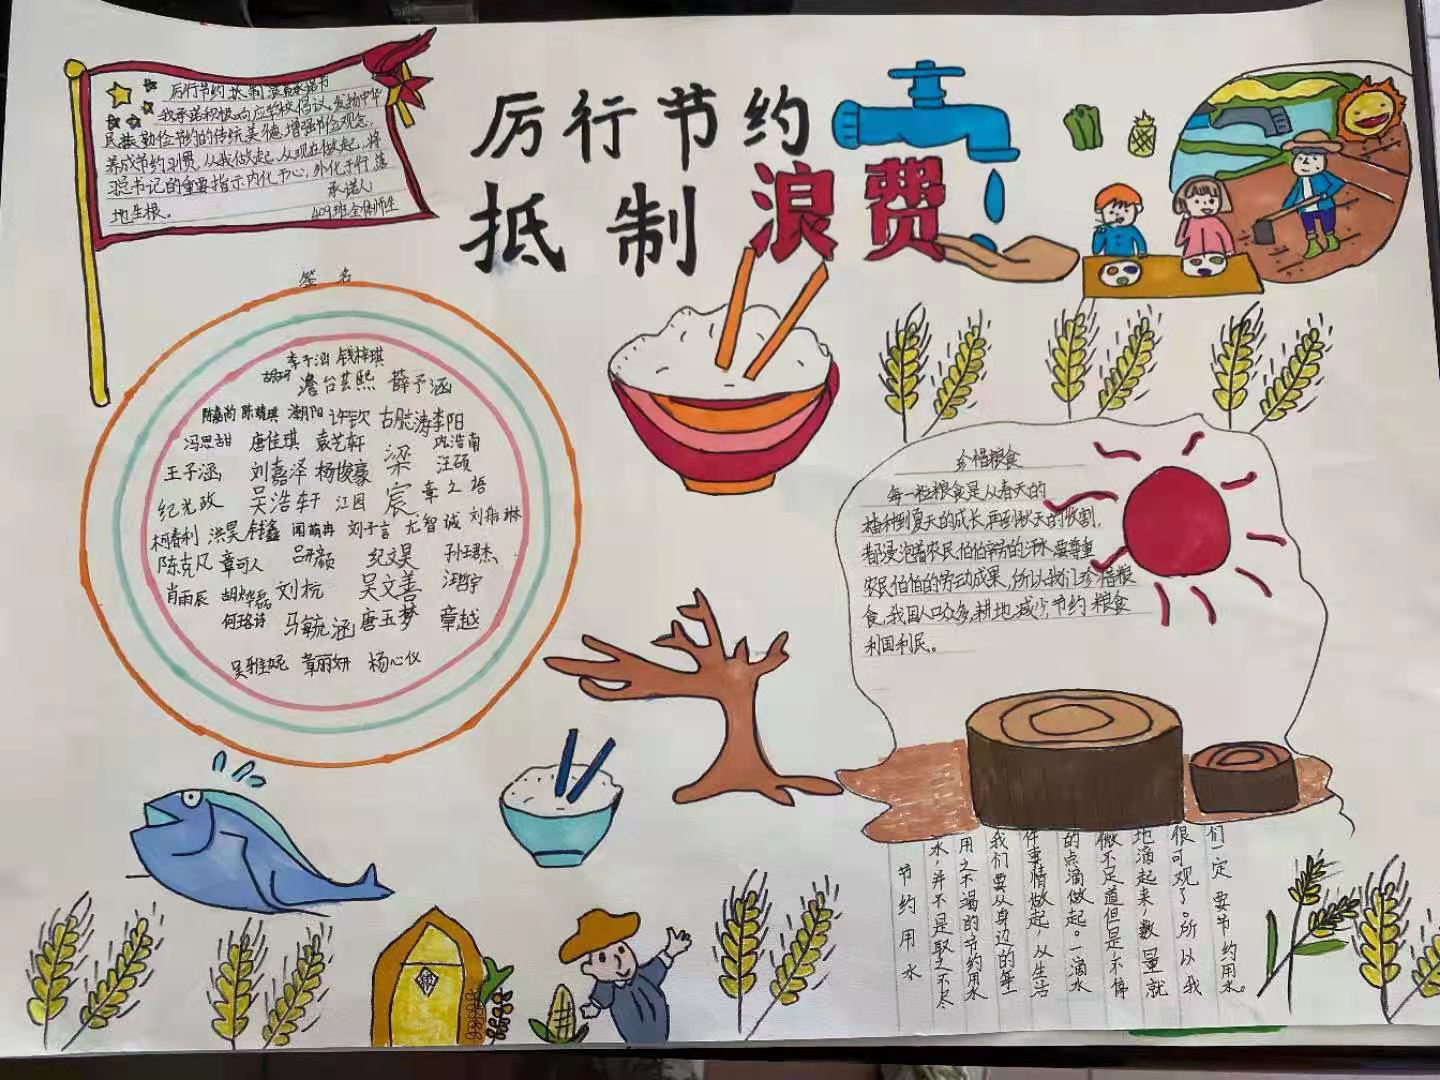 厉行节约
抵制浪费
厉行节约抵制浪费承诺书
我承诺积极响应学校倡议,发扬中华
民族勤俭节约的传统美德,增强节俭观念,
养成节约习惯,从我做起,从现在做起,将
习总书记的重要指示内化于心,外化于行,落
地生根。
承诺人:
409班全体师生
签名
李子涵 钱梓琪
澹台芸熙 薛予涵
许钦 李阳
冯思甜 唐佳琪 袁艺轩
王子涵 刘嘉泽 杨俊豪 梁宸 汪硕
纪光政 吴浩轩 江园 章之培
柯春利 洪昊 钟鑫 闻萌冉 刘子言 尤智诚 刘船琳
陈克凡 章可人 吕研颜 纪文昊 孙珺杰
肖雨辰 胡烨磊 刘杭 吴文善
何珞诗 马毓涵 唐五梦 章越
吴雅妮 章丽妍 杨心仪
珍惜粮食
每一粒粮食是从春天的
播种到夏天的成长,再到秋天的收割,
都浸泡着农民伯伯辛劳的汗水,要尊重
农民伯伯的劳动成果,所以我们珍惜粮
食,我国人口众多,耕地减少,节约粮食
利国利民。
节约用水
水,并不是取之不尽
用之不竭的,节约用水
我们要从身边的每一
件事情做起,从生活
的点滴做起。一滴水
微不足道但是,不停
地滴起来,数量就
很可观了。所以我
们定要节约用水。